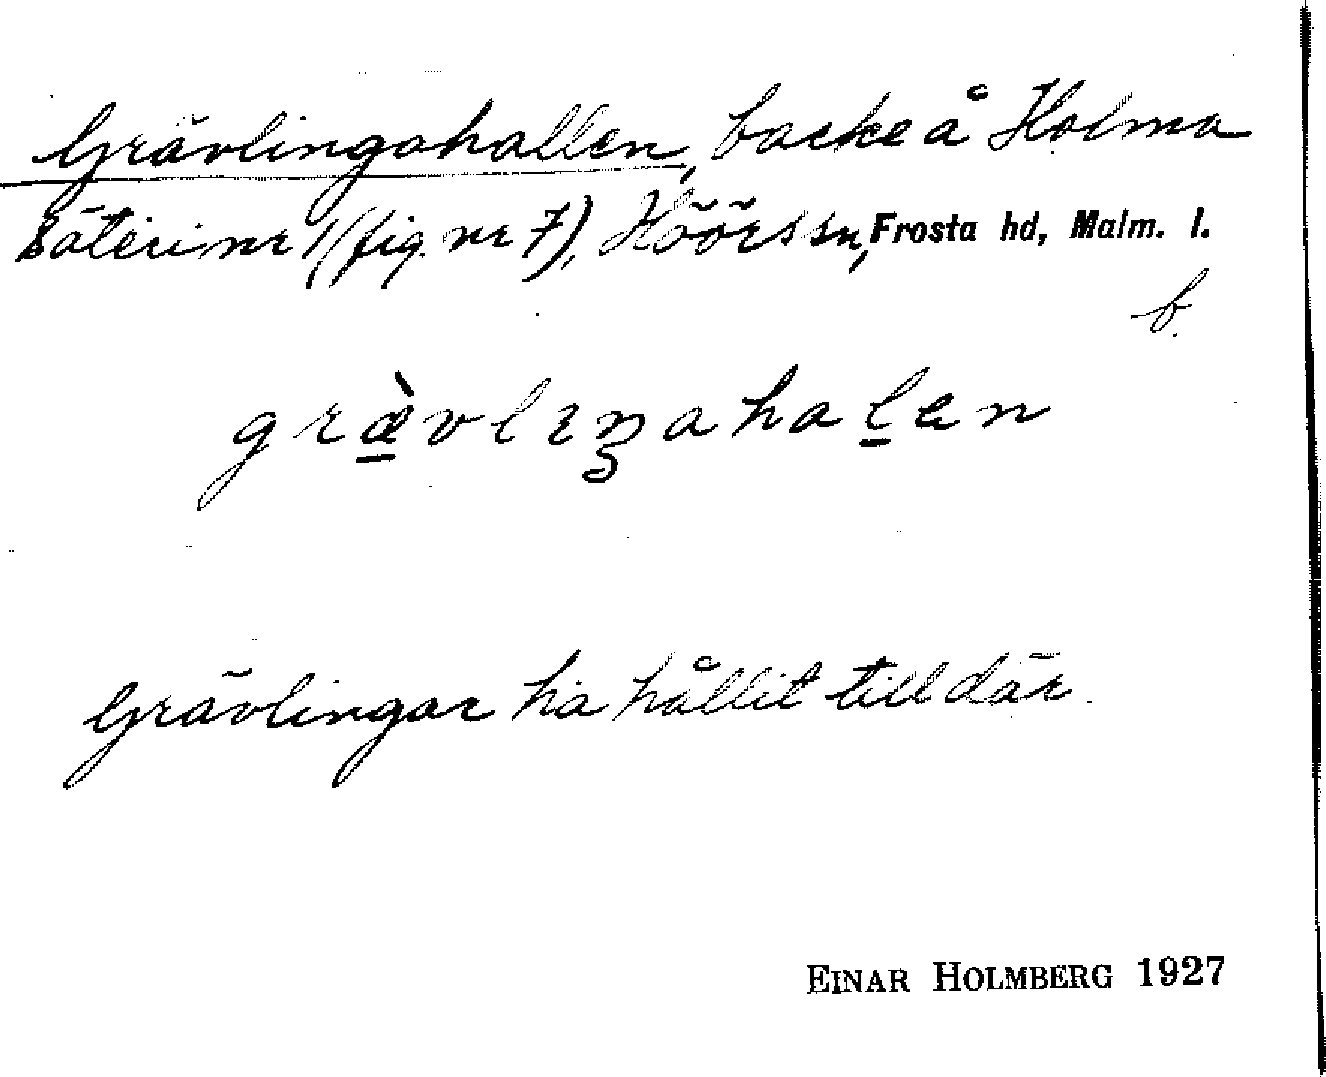 Grävlingahallen, backe å Holma
Säteri nr 1 (fig. nr 7), Höörs sn, Frosta hd, Malm. l.
b.
græ̀vlıŋahalen
Grävlingar ha hållit till där.
EINAR HOLMBERG 1927